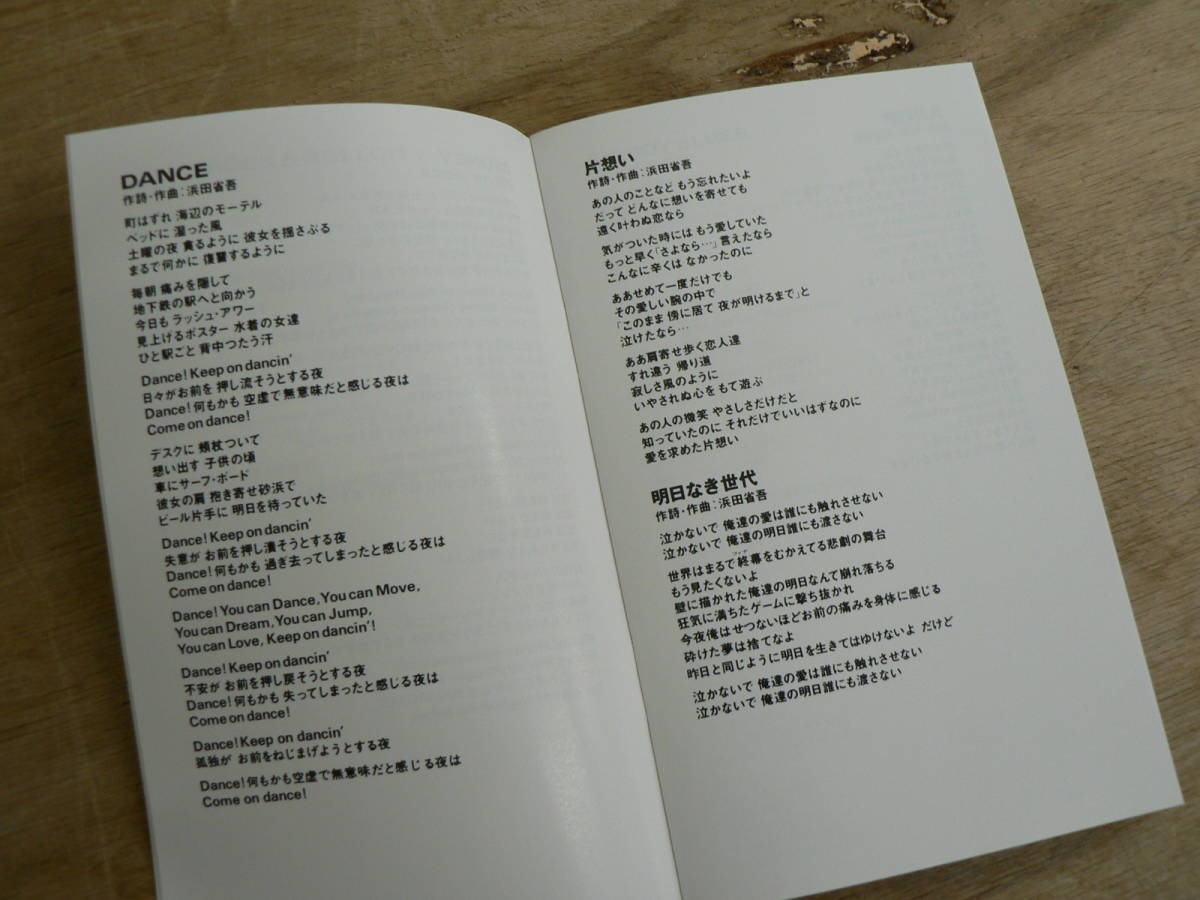 DANCE
作詩・作曲:浜田省吾
町はずれ 海辺のモーテル
ベッドに 湿った風
土曜の夜 貪るように 彼女を揺さぶる
まるで何かに 復讐するように
毎朝 痛みを隠して
地下鉄の駅へと向かう
今日も ラッシュ・アワー
見上げるポスター 水着の女達
ひと駅ごと 背中つたう汗
Dance! Keep on dancin'
日々がお前を 押し流そうとする夜
Dance! 何もかも 空虚で無意味だと感じる夜は
Come on dance!
デスクに 頬杖ついて
想い出す 子供の頃
車にサーフ・ボード
彼女の肩 抱き寄せ砂浜で
ビール片手に 明日を待っていた
Dance! Keep on dancin'
失意が お前を押し潰そうとする夜
Dance! 何もかも 過ぎ去ってしまったと感じる夜は
Come on dance!
Dance! You can Dance, You can Move,
You can Dream, You can Jump,
You can Love, Keep on dancin'!
Dance! Keep on dancin'
不安が お前を押し戻そうとする夜
Dance! 何もかも 失ってしまったと感じる夜は
Come on dance!
Dance! Keep on dancin'
孤独が お前をねじまげようとする夜
Dance! 何もかも空虚で無意味だと感じる夜は
Come on dance!
片想い
作詩・作曲:浜田省吾
あの人のことなど もう忘れたいよ
だって どんなに想いを寄せても
遠く叶わぬ恋なら
気がついた時には もう愛していた
もっと早く「さよなら…」言えたなら
こんなに辛くは なかったのに
ああせめて一度だけでも
その愛しい腕の中で
「このまま 傍に居て 夜が明けるまで」と
泣けたなら…
ああ肩寄せ歩く恋人達
すれ違う 帰り道
寂しさ風のように
いやされぬ心を もて遊ぶ
あの人の微笑 やさしさだけだと
知っていたのに それだけでいいはずなのに
愛を求めた片想い
明日なき世代
作詩・作曲:浜田省吾
泣かないで 俺達の愛は誰にも触れさせない
泣かないで 俺達の明日誰にも渡さない
世界はまるで終幕をむかえてる悲劇の舞台
もう見たくないよ
壁に描かれた俺達の明日なんて崩れ落ちる
狂気に満ちたゲームに撃ち抜かれ
今夜俺はせつないほどお前の痛みを身体に感じる
砕けた夢は捨てなよ
昨日と同じように明日を生きてはゆけないよ だけど
泣かないで 俺達の愛は誰にも触れさせない
泣かないで 俺達の明日誰にも渡さない